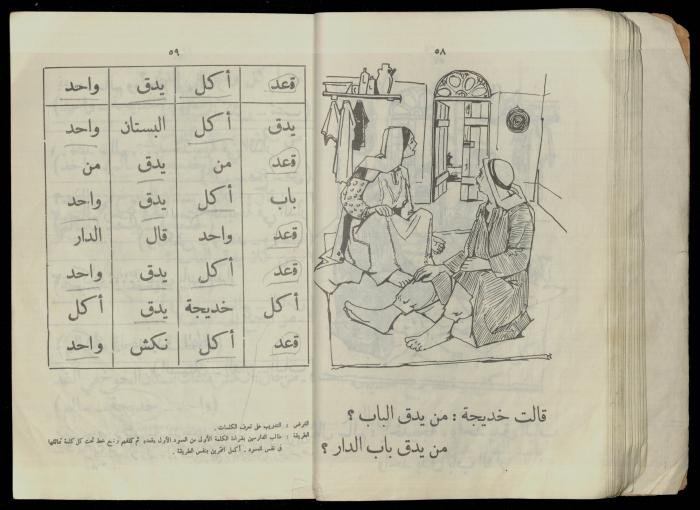 ٥٨
قالت خديجة : من يدق الباب ؟
من يدق باب الدار ؟
٥٩
قعد أكل يدق واحد
يدق أكل البستان واحد
قعد من يدق من
باب أكل يدق واحد
قعد واحد قال الدار
قعد أكل يدق واحد
أكل خديجة يدق أكل
قعد أكل نكش واحد
الغرض : التدريب على تعرف الكلمات .
الطريقة : طالب الدارسين بقراءة الكلمة الأولى من العمود الأول بقعد، ثم كلفهم وضع خط تحت كل كلمة تماثلها
في نفس العمود . أكمل التمرين بنفس الطريقة .